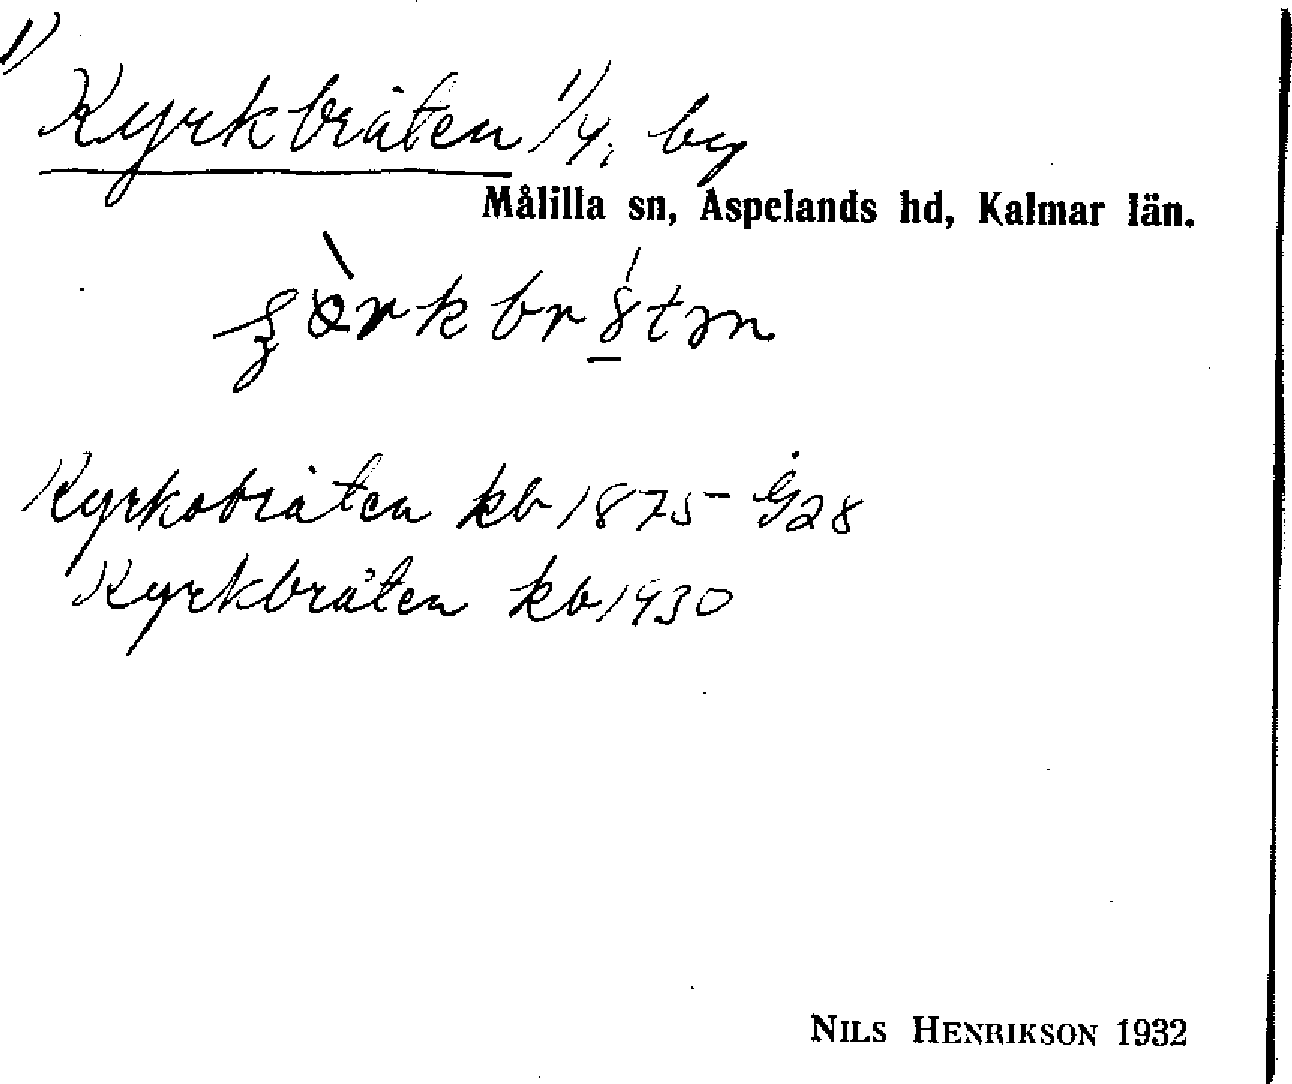 1)
Kyrkbråten 1/4, by
Målilla sn, Aspelands hd, Kalmar län.
Kyrkobråten kb 1875- G28
Kyrkbråten kb 1930
NILS HENRIKSON 1932